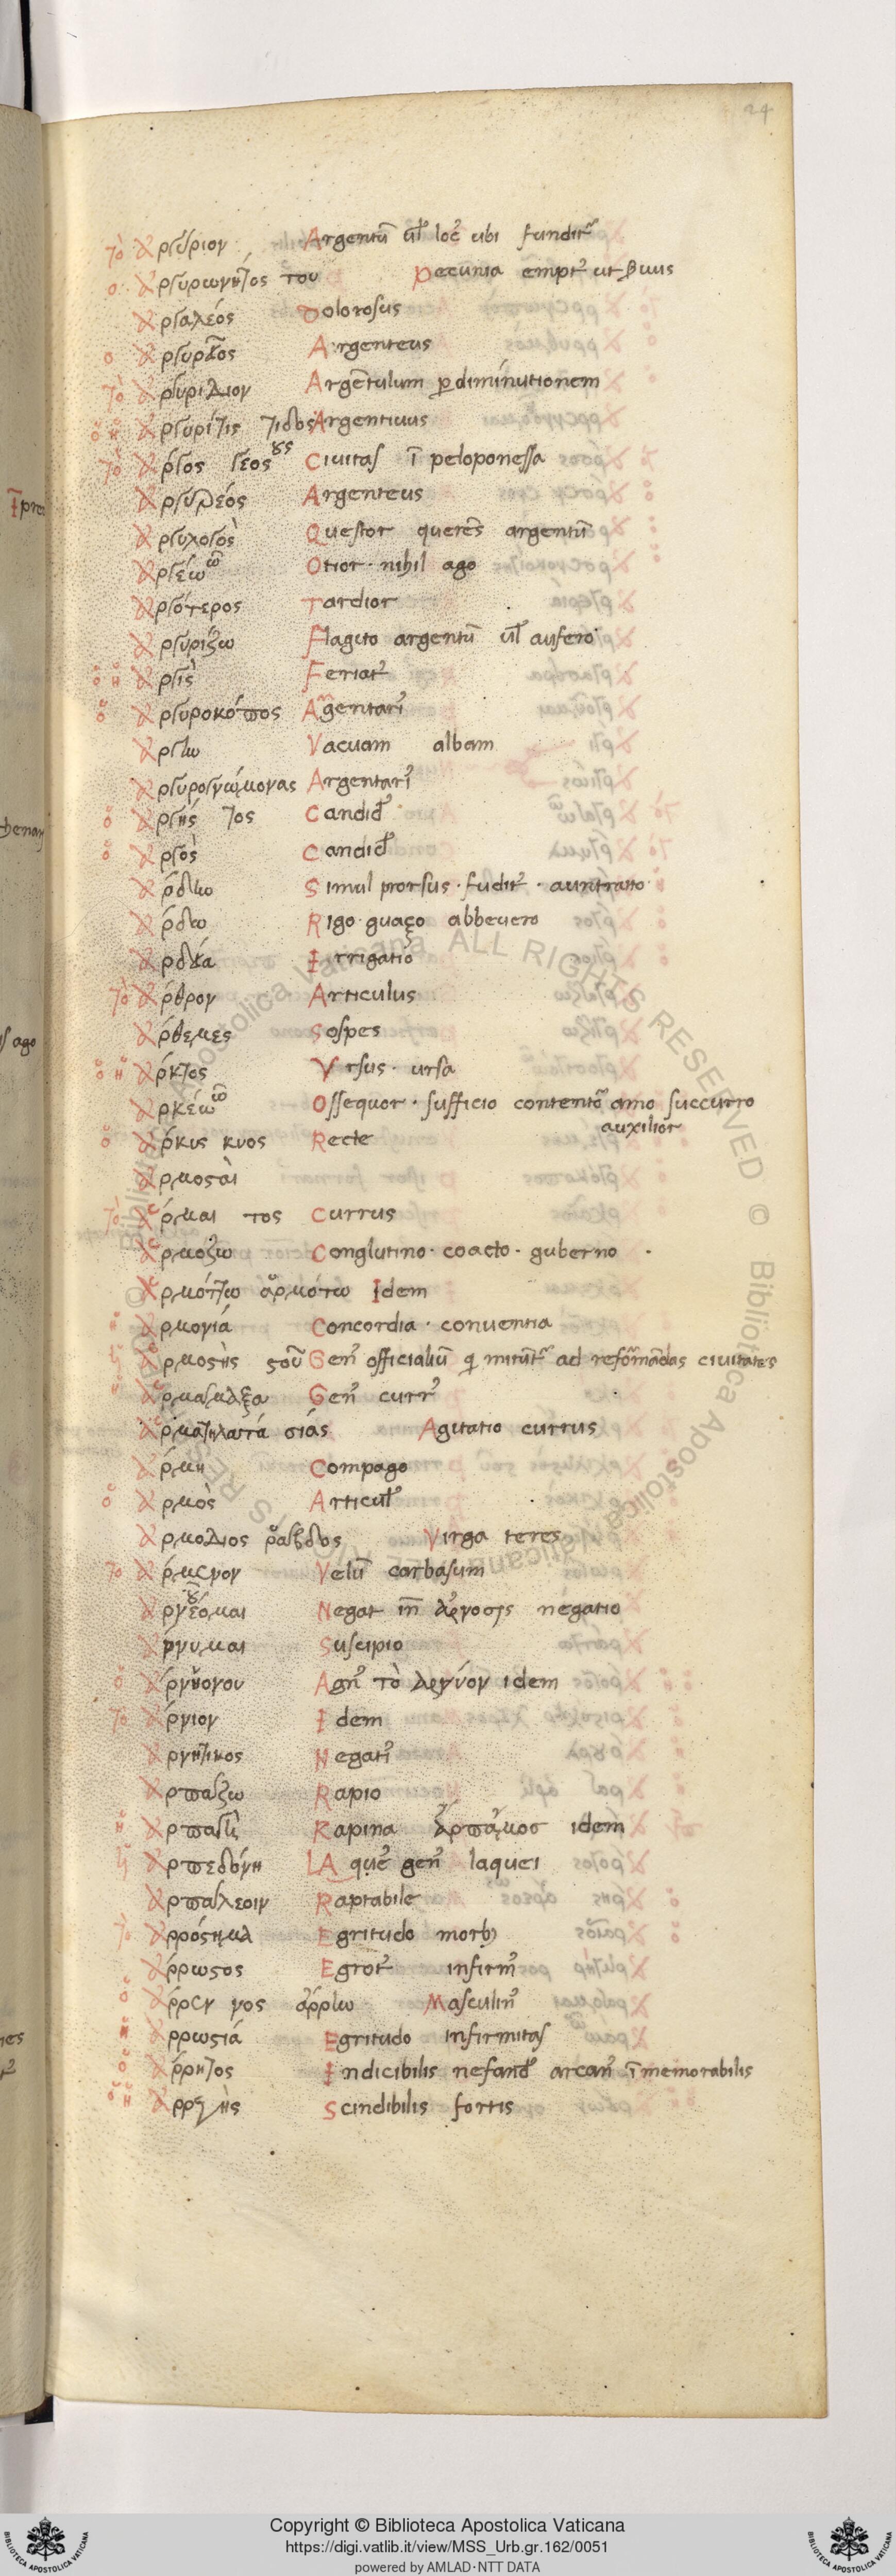 24
τὸ ἀργύριον Argentū uł locꝰ ubi funditᷣ
ὁ ἀργυρωνητος του Pecunia emptꝰ ut seruus
ἀργαλεός Dolorosus
ὁ ἀργυροῦς Argenteus
τὸ ἀργυρίδιον Argētulum ꝑ diminutionem
ὁ ἡ ἀργυρίτις τιδος Argentiuus
τὸ ἄργος γεος ους Ciuitas ī peloponessa
ἀργυρεός Argenteus
ἀργυρολογὸς Questor querēs argentū
ἀργέω ῶ Otior · nihil ago
ἀργότερος Tardior
ἀργυρίζω Flagito argentū uł aufero
ὁ ἡ ἀργὶς Feriatꝰ
ὁ ἀργυροκόπος Argentariꝰ
ἀργὴν Vacuam albam
ἀργυρογνώμονας Argentariꝰ
ὁ ἀργής τος Candidꝰ
ὁ ἀργὸς Candidꝰ
ἄρδην Simul prorsus · fuditꝰ
ἄρδω Rigo guazo abbeuero
ἀρδεία Irrigatio
τὸ ἄρθρον Articulus
ἀρθεμες Sospes
ὁ ἡ ἄρκτος Vrsus · ursa
ἀρκέω ῶ Ossequor · sufficio contentoᷣ amo succurro
auxilior
ὁ ἄρκυς κυος Recte
ἁρμοσαι
τὸ ἅρμαι τος Currus
ἁρμόζω Conglutino · coacto · guberno
ἁρμόττω ἁρμότω Idem
ἡ ἁρμονιά Concordia · conuentia
ὁ ἁρμοστὴς στοῦ Genꝰ officialiū qͥ mitūtᷣ ad reformādas ciuitates
ἡ ἁρμαμαξα Genꝰ currꝰ
ἁρματηλατά σιάς Agitatio currus
ἄρμη Compago
ὁ ἁρμὸς Articulꝰ
ἁρμολιος ῥάβδος Virga teres
τὸ ἄρμενον Velū carbasum
ἀρνέομαι οῦ Negat īn ἄρνοσις negatio
ἄρνυμαι Suscipio
ὁ ἀρνὴονου Agnꝰ τὸ ἀρνύον idem
τὸ ἄρνιον Idem
ἀρνητικος Negatiꝰ
ἁρπάζω Rapio
ἡ ἁρπαγὴ Rapina ἁρπαγμοσ idem
ἡ ἁρπεδόνη LAqueꝰ genꝰ laquei
ἁρπαλεοιν Raptabile
τὸ ἀρρόστημα Egritudo morbꝫ
ἄρρωστος Egrotꝰ infirmꝰ
ὁ ἄρρεν νος ἄρρην Masculinꝰ
ἡ ἀρρωστιά Egritudo infirmitas
ὁ ἄρρητος Indicibilis nefandꝰ arcanꝰ īmemorabilis
ὁ ἡ ἀρραγὴς Scindibilis fortis
Copyright © Biblioteca Apostolica Vaticana
https://digi.vatlib.it/view/MSS_Urb.gr.162/0051
powered by AMLAD·NTT DATA